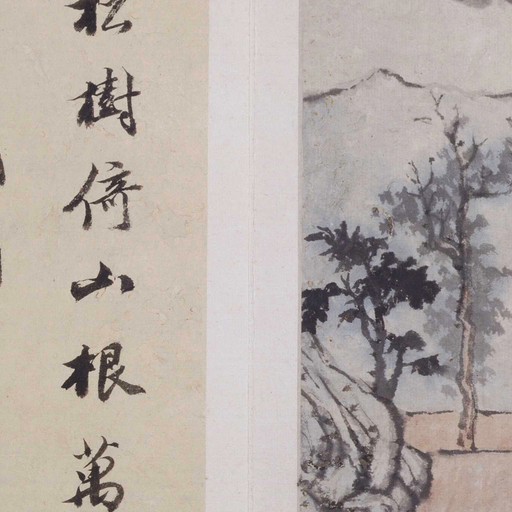 松樹倚山根萬